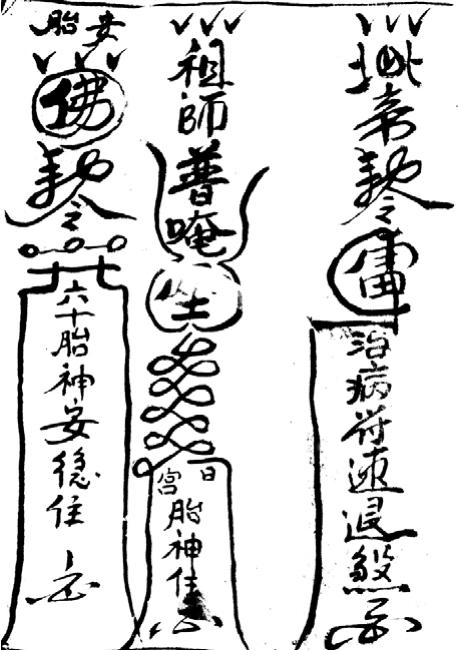 北帝敕令
雷
治病符速退煞
祖師普唵
日宮胎神住
安胎
佛
敕令
六十胎神安穩住